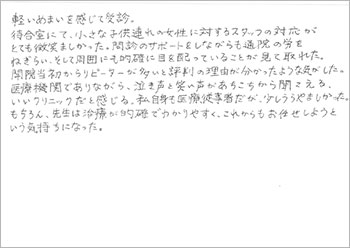 軽いめまいを感じて受診。
待合室にて、小さな子供連れの女性に対するスタッフの対応が
とても微笑ましかった。問診のサポートをしながらも通院の労を
ねぎらい、そして周囲にも的確に目を配っていることが見て取れた。
開院当初からリピーターが多いと評判の理由が分かったような気がした。
医療機関でありながら、泣き声と笑い声があちこちから聞こえる、
いいクリニックだと感じる。私自身も医療従事者だが、少しうらやましかった。
もちろん、先生は治療が的確で分かりやすく、これからもお任せしようと
いう気持ちになった。